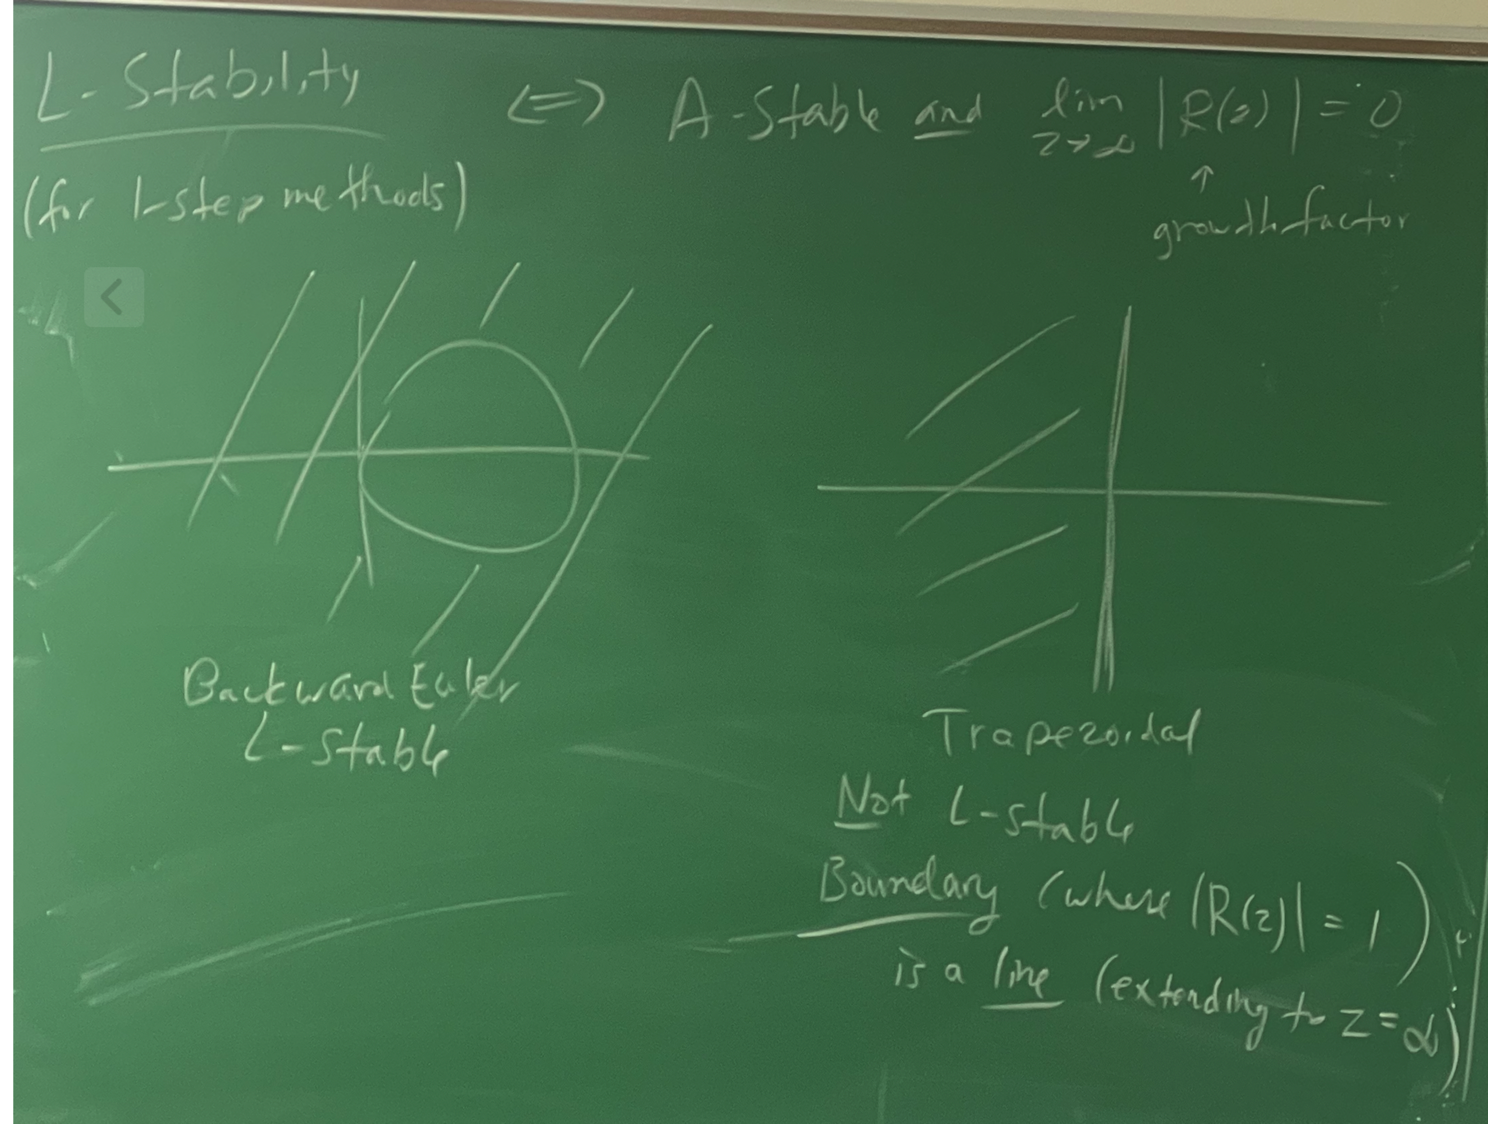 L-Stability <=> A-Stable and lim |R(z)| = 0
z→∞
(for 1-step methods)
↑
growth factor
Backward Euler
L-Stable
Trapezoidal
Not L-Stable
Boundary (where |R(z)| = 1)
is a line (extending to z=∞)